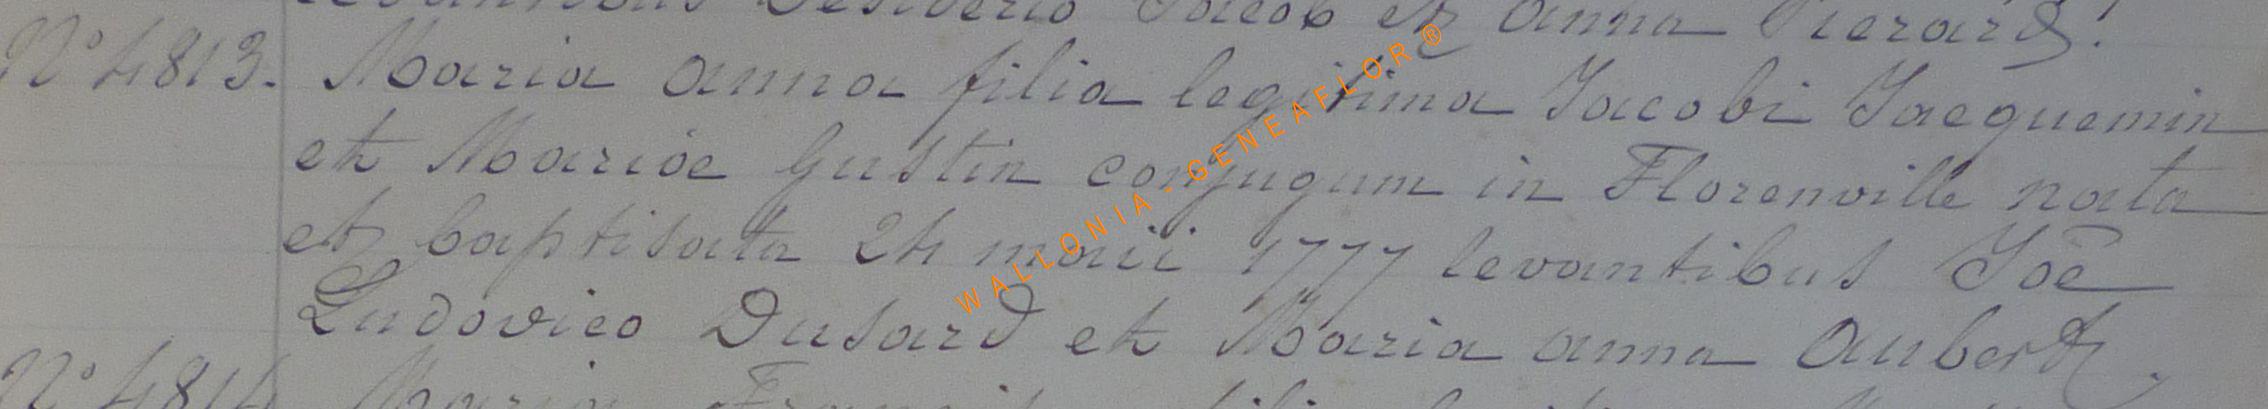 levantibus Desiderio Jacob et Anna Pierard.
N° 4813. Maria Anna filia legitima Jacobi Jacquemin
et Mariæ Gustin conjugum in Florenville nata
et baptisata 24 maii 1777 levantibus Joē
Ludovico Dusard et Maria Anna Aubert.
N° 4814 Maria
WALLONIA-GENEAFLOR ®